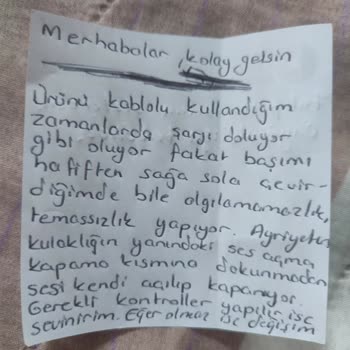 Merhabalar, kolay gelsin
Ürünü kablolu kullandığım
zamanlarda şarjı doluyor
gibi oluyor fakat başımı
hafiften sağa sola çevir-
diğimde bile algılamamazlık,
temassızlık yapıyor. Ayriyeten
kulaklığın yanındaki ses açma,
kapama kısmına dokunmadan
sesi kendi açılıp kapanıyor.
Gerekli kontroller yapılır ise
sevinirim. Eğer olmaz ise değişim